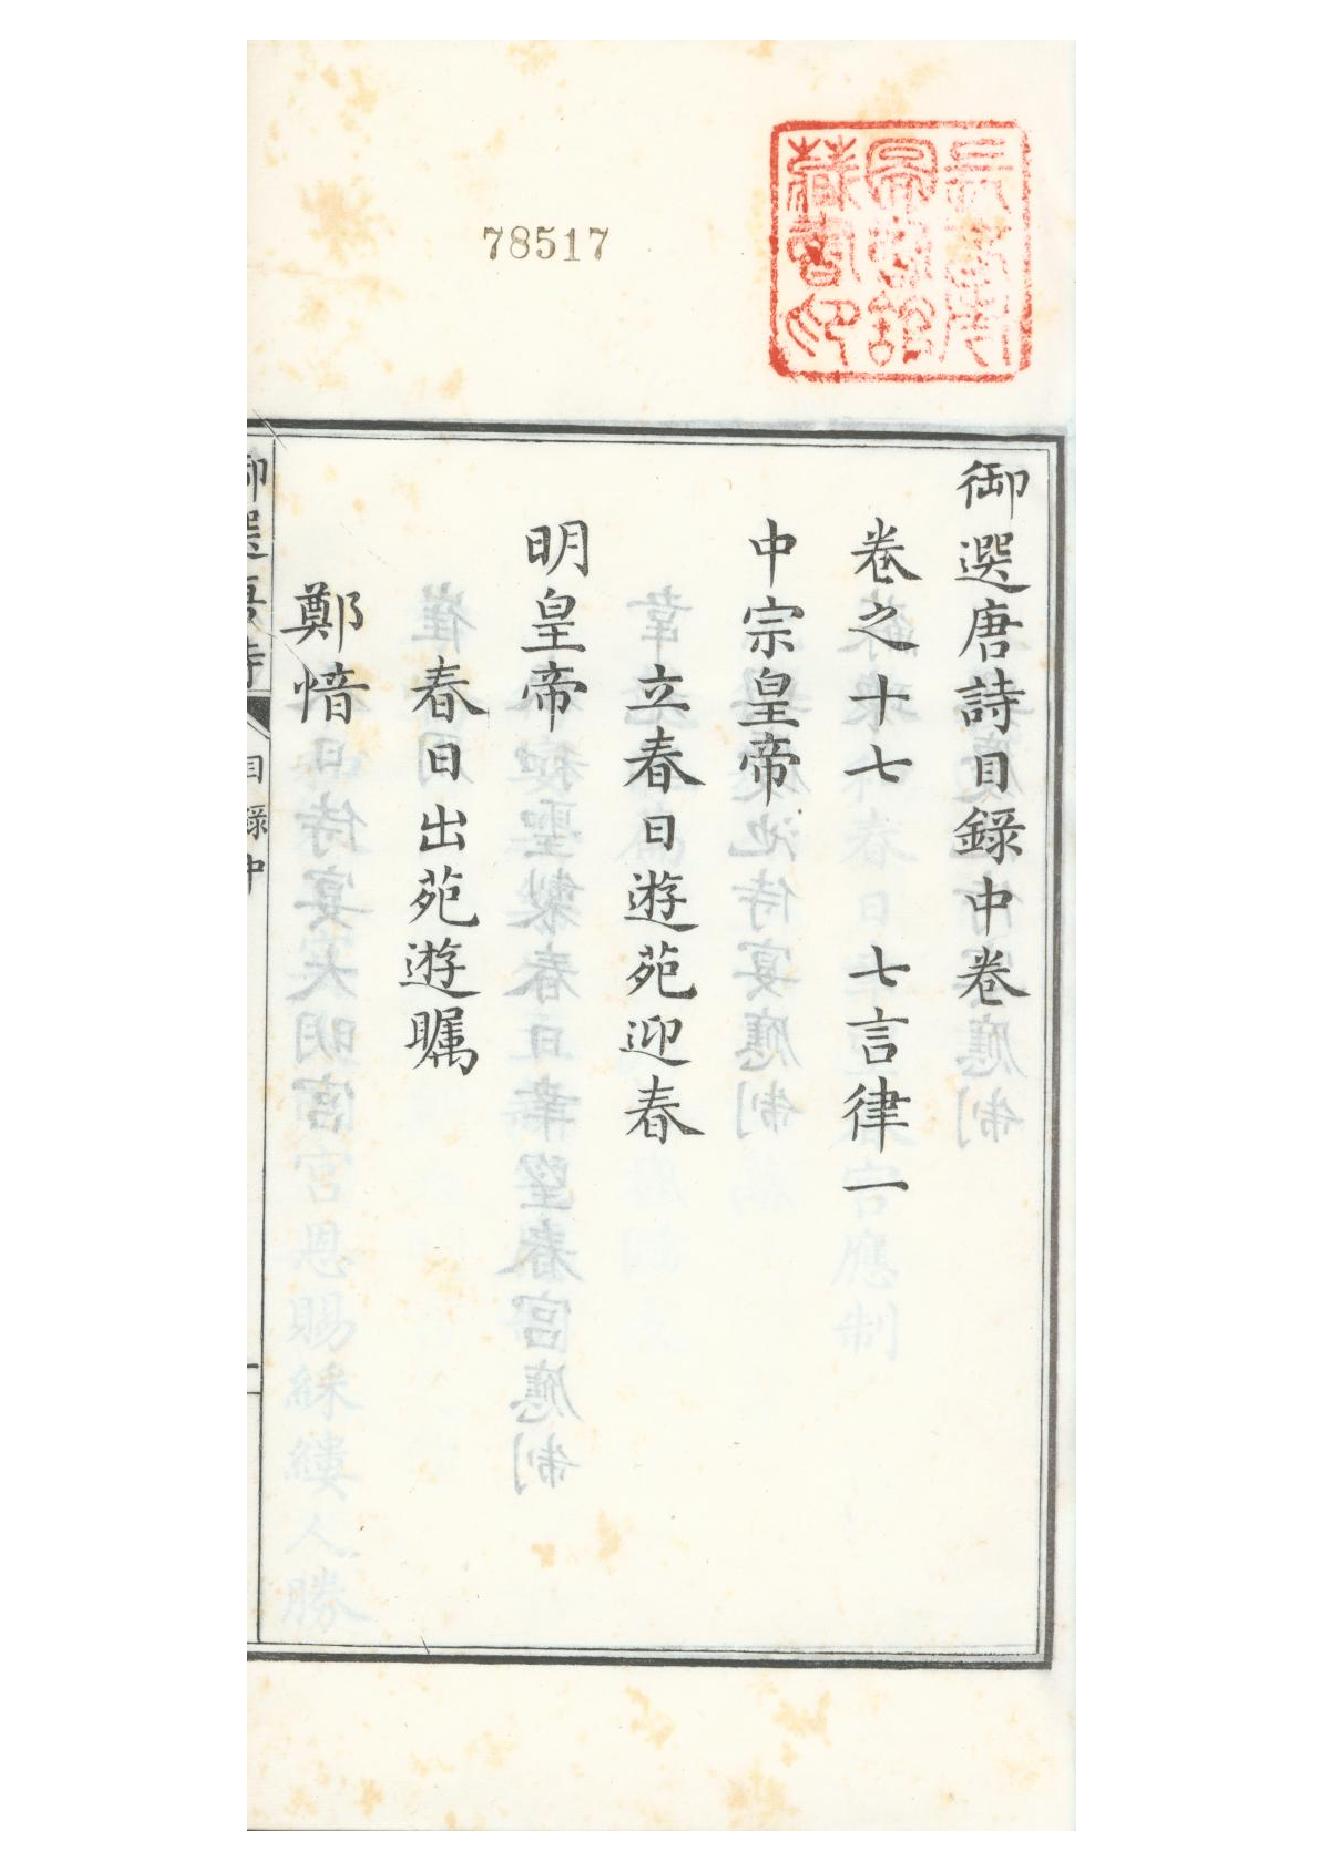 78517
御選唐詩目錄中卷
卷之十七　七言律一
中宗皇帝
立春日遊苑迎春
明皇帝
春日出苑遊矚
鄭愔
御選唐詩
目錄中
一